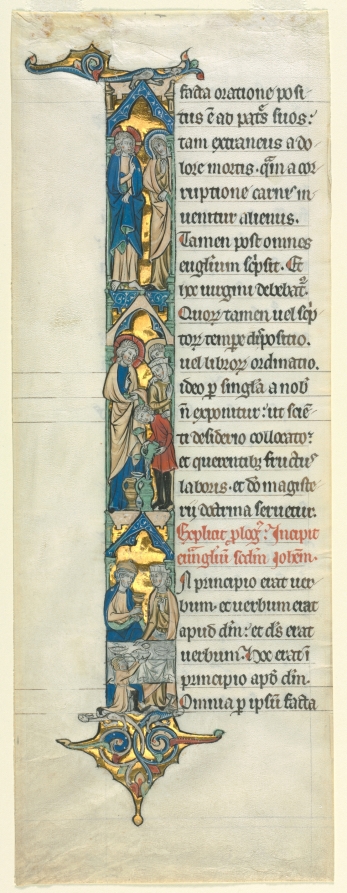 facta oratione posi
tus ē ad patͤs suos:
tam extraneus a do
lore mortis. q̄m a cor
ruptione carnıͤ in
uenitur alienus.
Tamen post omnes
euglium sc̄psit. Et
hoc uirgini debebat̉.
Quoꝝ tamen uel sc̄p
toꝝ tempe dıͤpositio.
uel libroꝝ ordinatio.
ideo ꝑ singla a nobͥ
n̄ exponitur: ut scıē
ti desiderio collocato:
et querentibꝫ fructuͤ
laboris. et dō magiste
rii doctrina seruetur.
Explicit plog̉. Incipit
euu̅gliū scdm Johem.
N principio erat uer
bum. et uerbum erat
apud dm̄: et ds̄ erat
uerbum. Hoc erat ī
principio apd̉ dm̄.
Omnia ꝑ ipsū facta